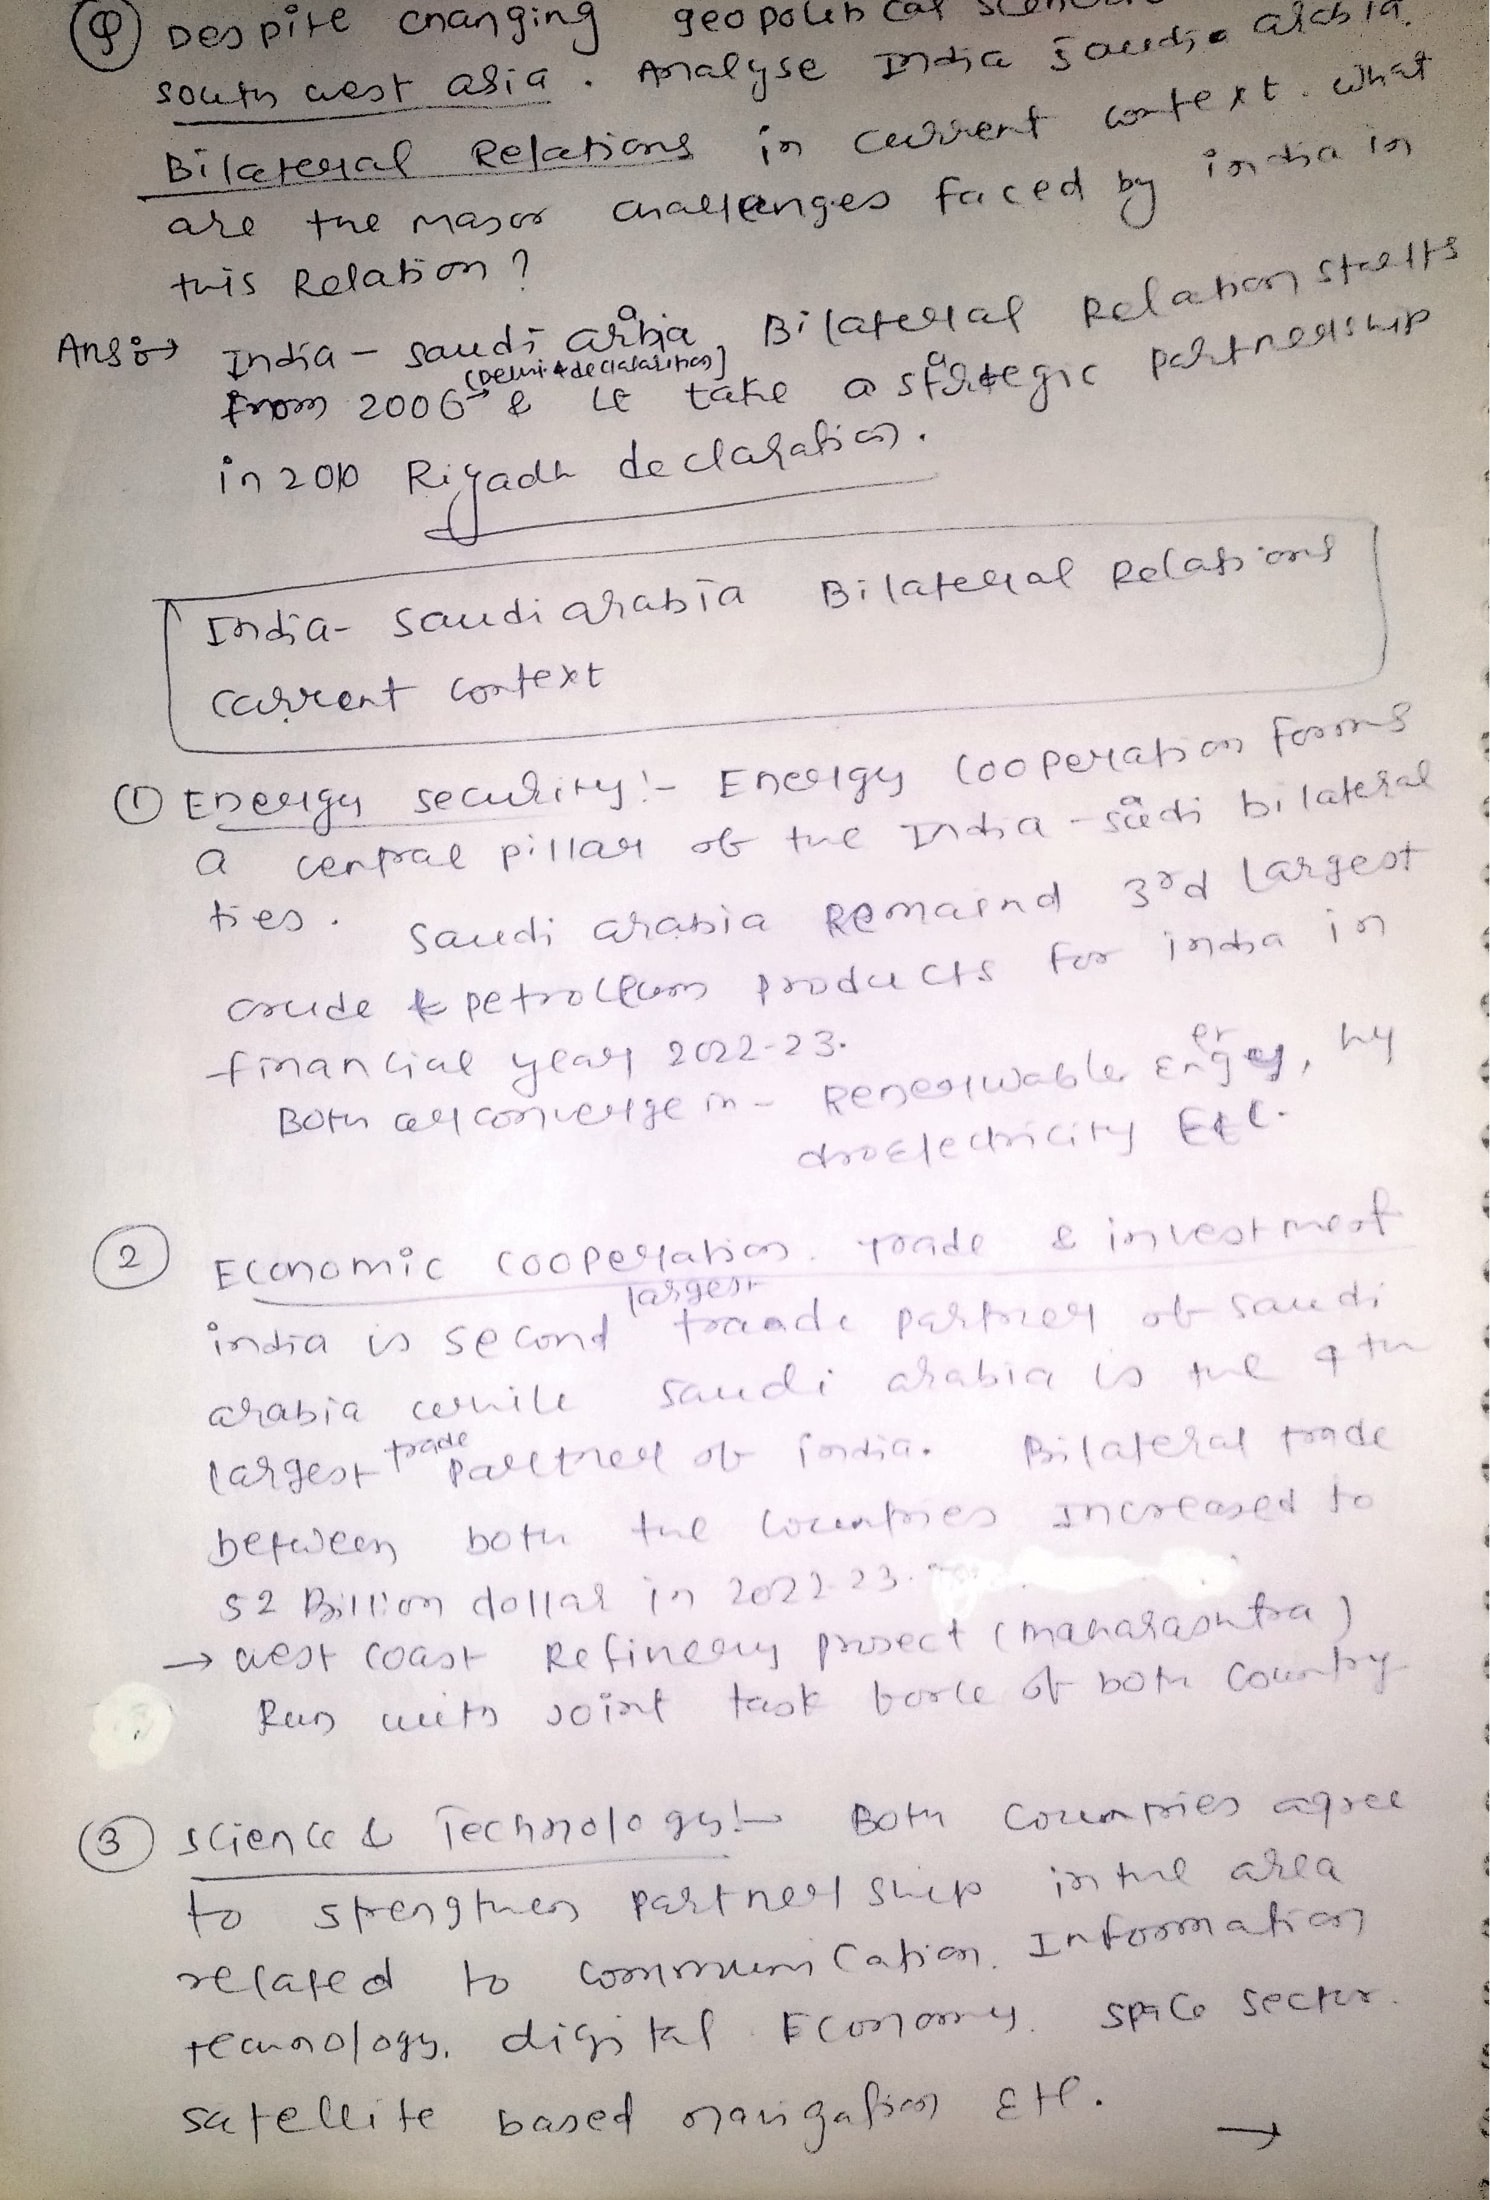 Q Despite changing geopolitical
south west asia. Analyse India Saudia arabia
Bilateral Relations in current context. what
are the major challenges faced by india in
this Relation?
Ans:→ India - saudi arabia Bilateral Relation starts
(Delhi declaration)
from 2006 & it take a strategic partnership
in 2010 Riyadh declaration.
India- saudi arabia Bilateral Relations
current context
① Energy security:- Energy cooperation forms
a central pillar of the India - saudi bilateral
ties. saudi arabia Remaind 3rd largest
crude & petroleum products for india in
financial year 2022-23.
Both are converge in - Renewable Energy, hy
droelectricity Etc.
② Economic cooperation. Trade & investment
india is second largest traade partner of saudi
arabia while saudi arabia is the 4th
largest trade partner of india. Bilateral trade
between both the countries increased to
52 Billion dollar in 2022-23.
→ west coast Refinery project (maharashtra)
Run with joint task force of both country
③ science & Technology:- Both countries agree
to strengthen partnership in the area
related to communication. Information
technology, digital Economy. space sector.
satellite based navigation Etc.
→